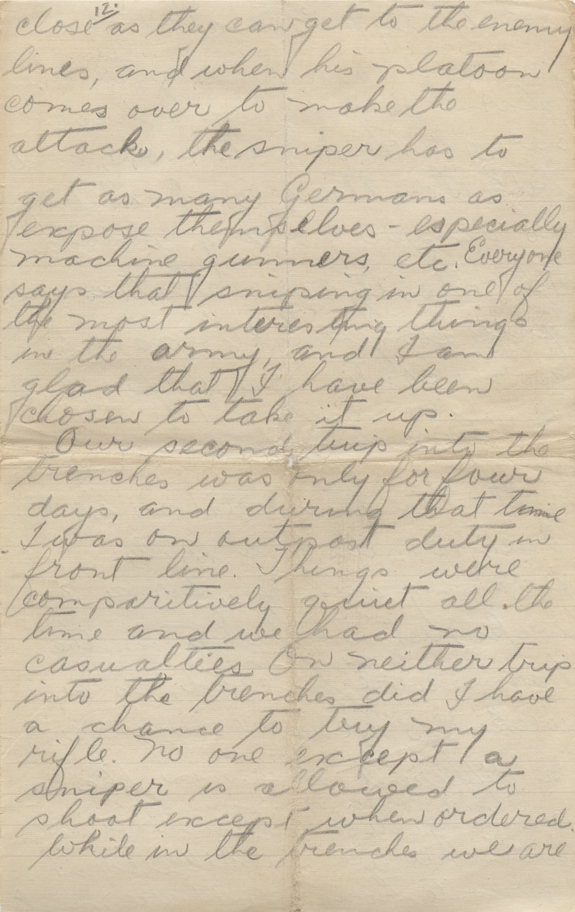 12.
close as they can get to the enemy
lines, and when his platoon
comes over to make the
attack, the sniper has to
get as many Germans as
expose themselves - especially
machine gunners, etc. Everyone
says that sniping in one of
the most interesting things
in the army, and I am
glad that I have been
chosen to take it up.
Our second trip into the
trenches was only for four
days, and during that time
I was on outpost duty in
front line. Things were
comparitively quiet all the
time and we had no
casualties. On neither trip
into the trenches did I have
a chance to try my
rifle. No one except a
sniper is allowed to
shoot except when ordered.
While in the trenches we are